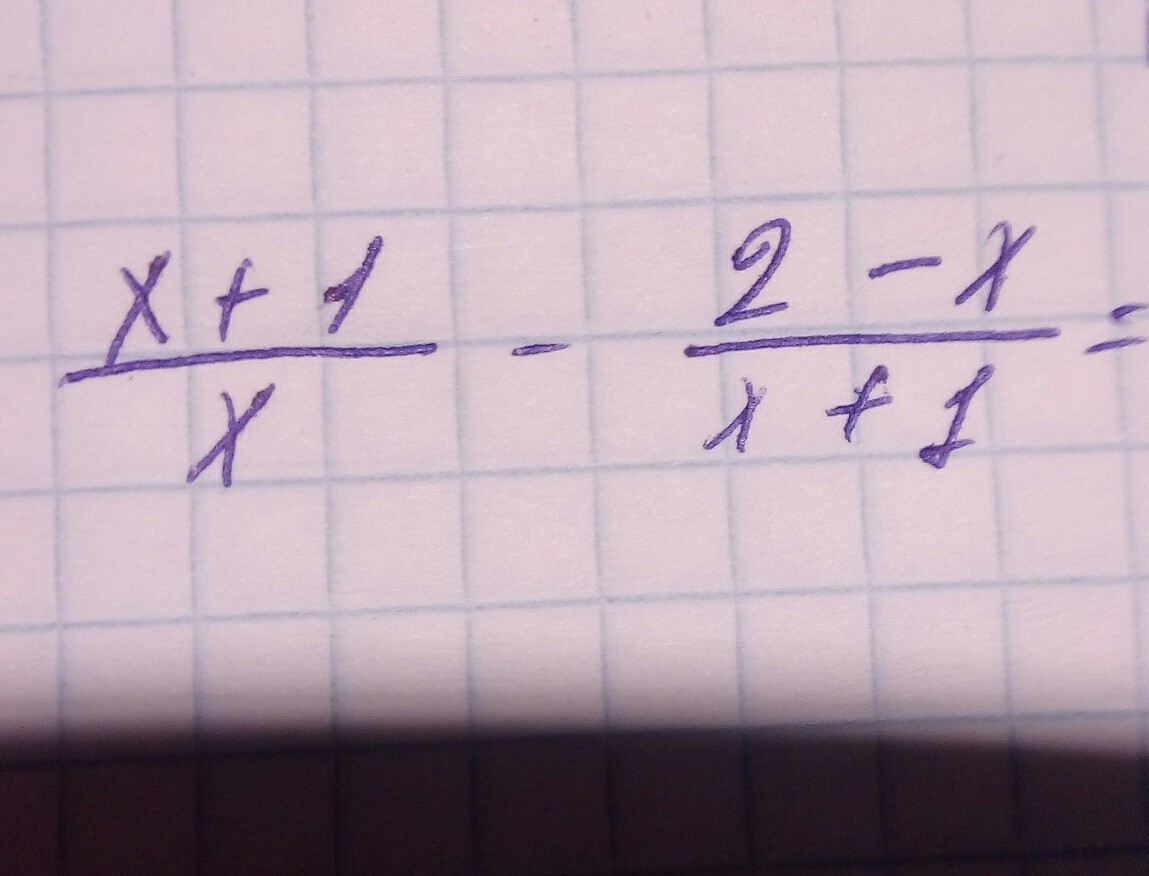 \frac{x+1}{x} - \frac{2-x}{x+1} =